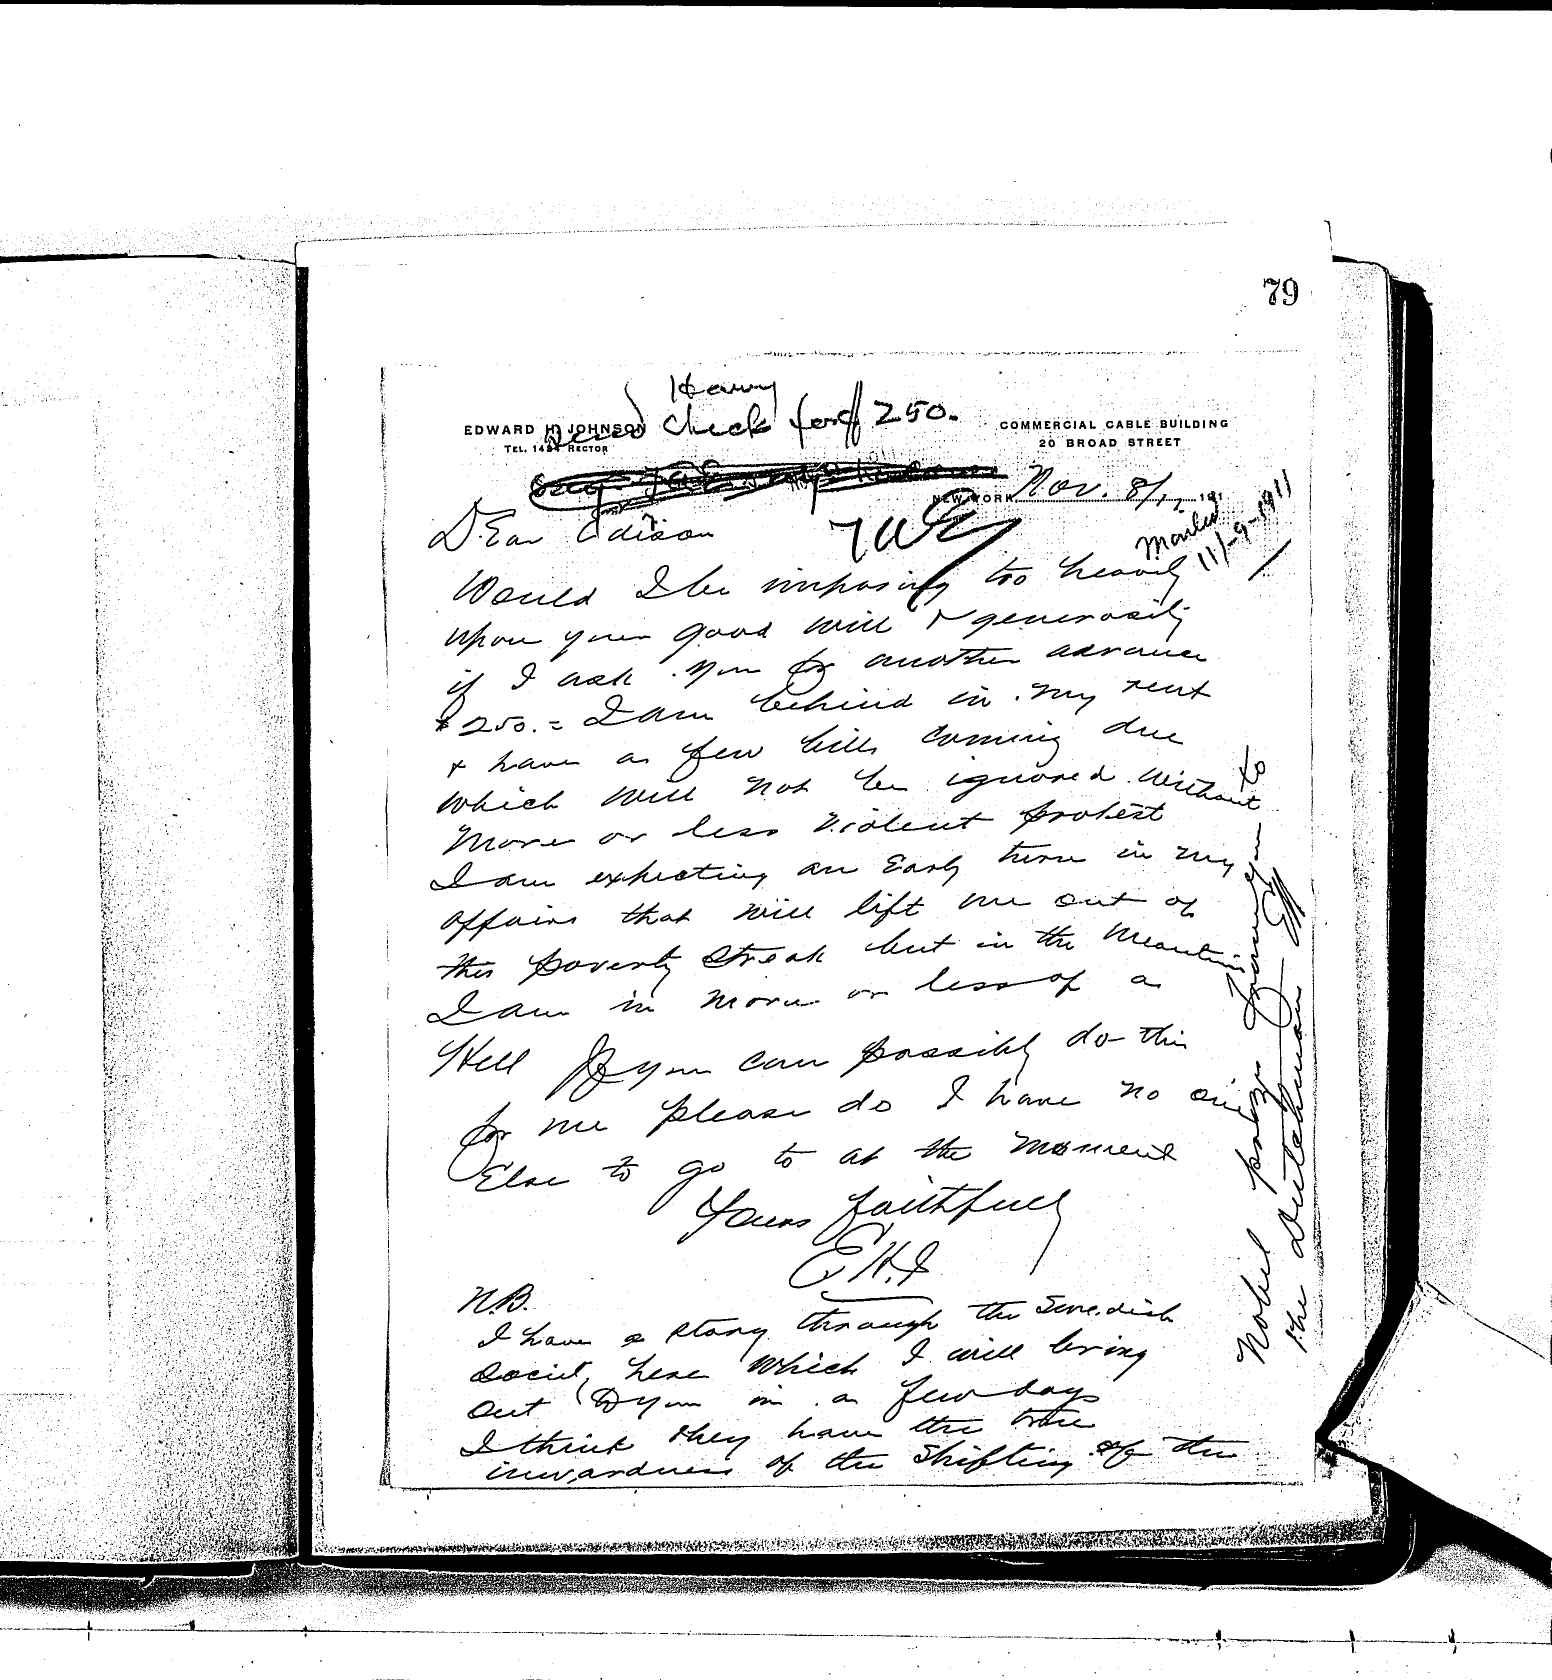 79
Harry
Send check for $250.
EDWARD H. JOHNSON
TEL. 1434 RECTOR
COMMERCIAL CABLE BUILDING
20 BROAD STREET
NEW YORK Nov. 8/11 191
Mailed
11/-9-1911
Dear Edison
Would I be imposing too heavily
upon your good will & generosity
if I ask you for another advance
$250.= I am behind in my rent
& have a few bills coming due
which will not be ignored without
more or less violent protest
I am expecting an Early turn in my
affairs that will lift me out of
this poverty streak but in the Meantime
I am in more or less of a
Hell If you can possibly do this
for me please do I have no one
Else to go to at the moment
Yours faithfully
E.H.J
N.B.
I have a story through the Swedish
Society here which I will bring
out to you in a few days
I think they have the true
inwardness of the Shifting of the
Nobel prize from you to
the Dutchman EHJ